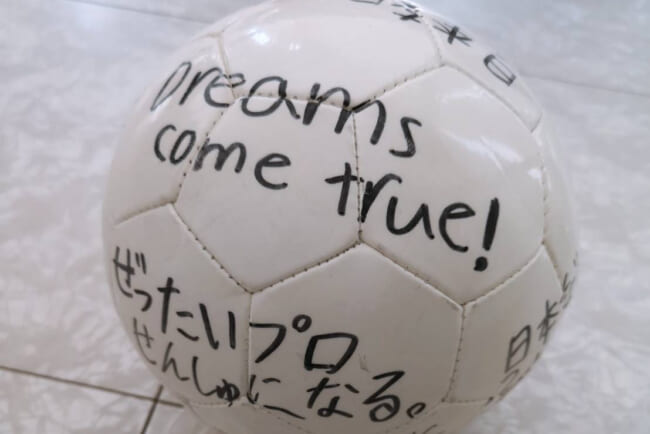 Dreams
come true!
ぜったいプロ
せんしゅになる。
日本